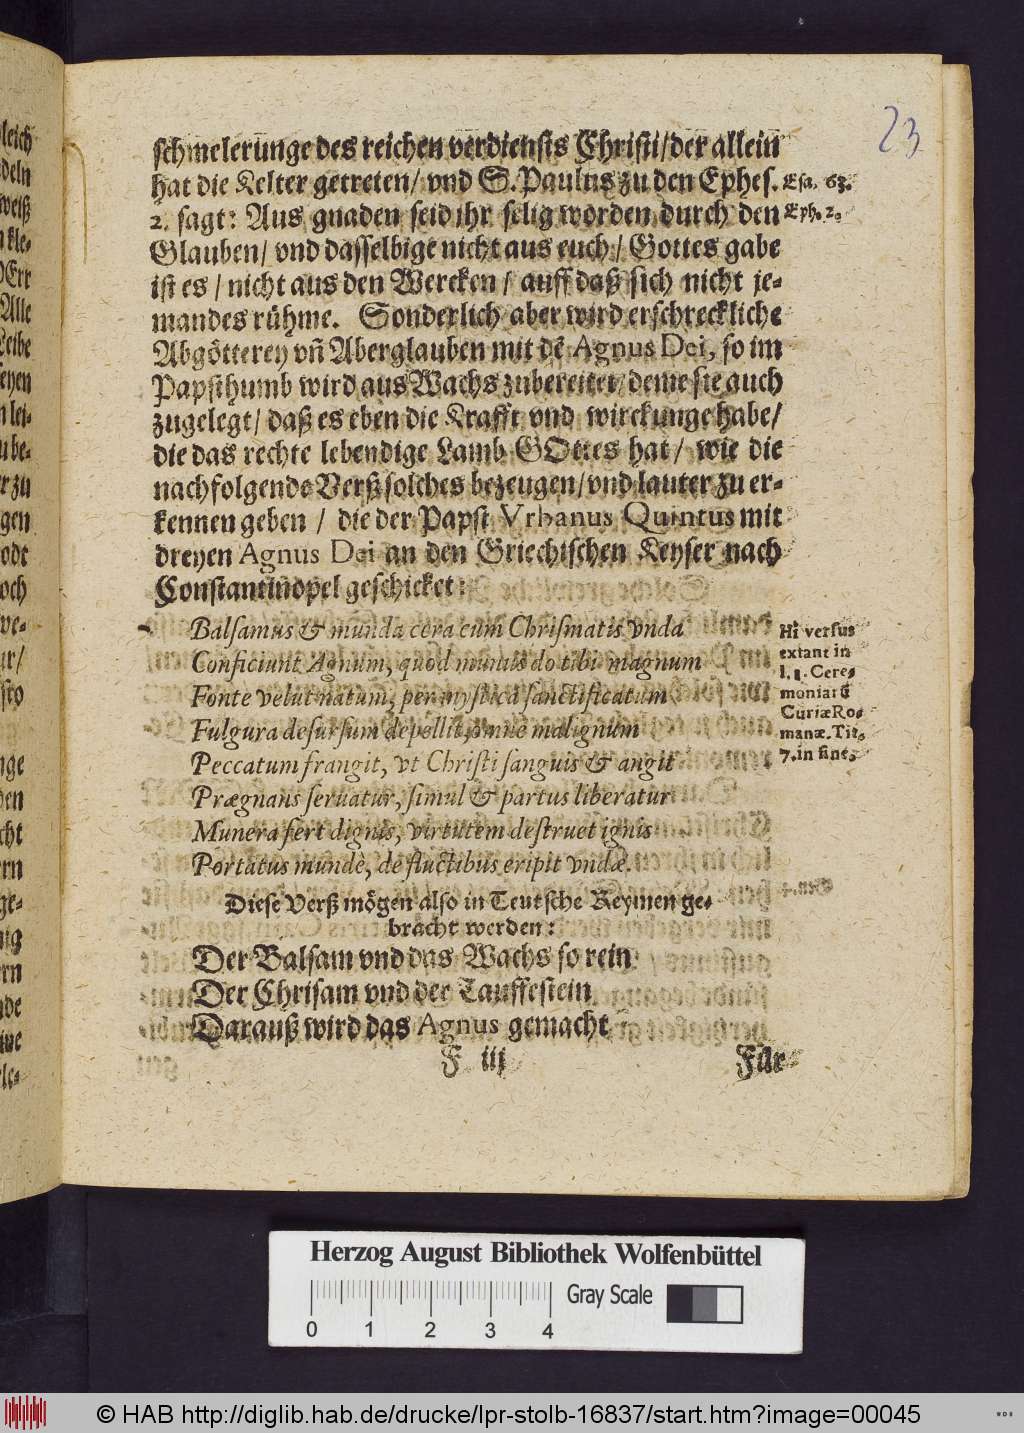 23
schmelerunge des reichen verdiensts Christi/der allein
hat die Kelter getreten/ vnd S. Paulus zu den Ephes.
Esa. 63.
2. sagt: Aus gnaden seid ihr selig worden durch den
Eph. 2.
Glauben/ vnd dasselbige nicht aus euch/ Gottes gabe
ist es / nicht aus den Wercken / auff daß sich nicht je-
mandes rühme. Sonderlich aber wird erschreckliche
Abgötterey vñ Aberglauben mit dē Agnus Dei, so im
Papsthumb wird aus Wachs zubereitet/ deme sie auch
zugelegt/ daß es eben die Krafft vnd wirckunge habe/
die das rechte lebendige Lamb GOttes hat/ wie die
nachfolgende Verß solches bezeugen/vnd lauter zu er-
kennen geben / die der Papst Vrbanus Quintus mit
dreyen Agnus Dei an den Griechischen Keyser nach
Constantinopel geschicket:
Balsamus & munda cera cum Chrismatis vnda
Conficiunt Agnum, quod munus do tibi magnum
Fonte velut natum, per mystica sanctificatum
Fulgura desursum depellit, omne malignum
Peccatum frangit, vt Christi sanguis & angit
Prægnans seruatur, simul & partus liberatur
Munera fert dignis, virtutem destruet ignis
Portatus mundè, de fluctibus eripit vndæ.
Hi versus
extant in
l. 1. Cere-
moniarū
Curiæ Ro-
manæ. Tit.
7. in fine.
Diese Verß mögen also in Teutsche Reymen ge-
bracht werden:
Der Balsam vnd das Wachs so rein
Der Chrisam vnd der Tauffestein
Darauß wird das Agnus gemacht
F iij
Für
Herzog August Bibliothek Wolfenbüttel
Gray Scale
0 1 2 3 4
© HAB http://diglib.hab.de/drucke/lpr-stolb-16837/start.htm?image=00045